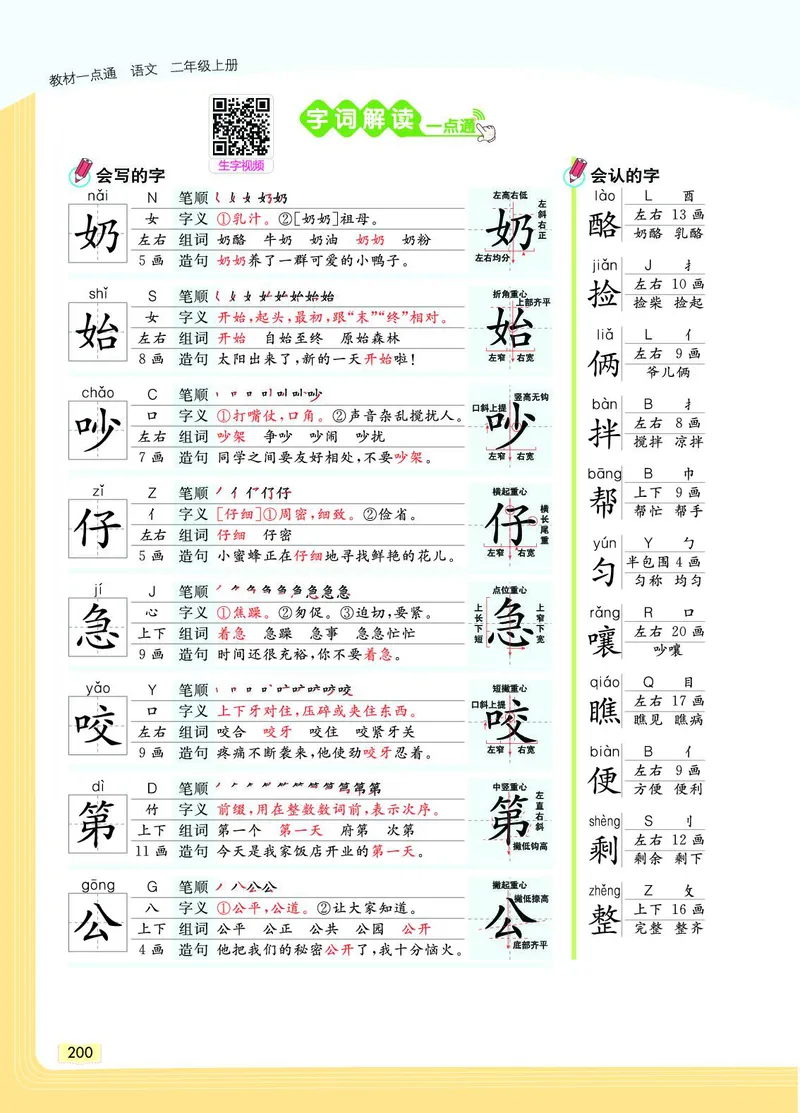 教材一点通 语文 二年级上册
生字视频
字词解读 一点通
会写的字
nǎi N 笔顺
奶 女 字义 ①乳汁。②[奶奶]祖母。
左右 组词 奶酪 牛奶 奶油 奶奶 奶粉
5画 造句 奶奶养了一群可爱的小鸭子。
左高右低
左斜右正
奶
左右均分
shǐ S 笔顺
始 女 字义 开始,起头,最初,跟“末”“终”相对。
左右 组词 开始 自始至终 原始森林
8画 造句 太阳出来了,新的一天开始啦!
折角重心
上部齐平
始
左窄 右宽
chǎo C 笔顺
吵 口 字义 ①打嘴仗,口角。②声音杂乱搅扰人。
左右 组词 吵架 争吵 吵闹 吵扰
7画 造句 同学之间要友好相处,不要吵架。
竖高无钩
口斜上提
吵
左窄 右宽
zǐ Z 笔顺
仔 亻 字义 [仔细]①周密,细致。②俭省。
左右 组词 仔细 仔密
5画 造句 小蜜蜂正在仔细地寻找鲜艳的花儿。
横起重心
横长尾重
仔
左窄 右宽
jí J 笔顺
急 心 字义 ①焦躁。②匆促。③迫切,要紧。
上下 组词 着急 急躁 急事 急急忙忙
9画 造句 时间还很充裕,你不要着急。
点位重心
上长下短
急
上窄下宽
yǎo Y 笔顺
咬 口 字义 上下牙对住,压碎或夹住东西。
左右 组词 咬合 咬牙 咬住 咬紧牙关
9画 造句 疼痛不断袭来,他使劲咬牙忍着。
短撇重心
口斜上提
咬
左窄 右宽
dì D 笔顺
第 竹 字义 前缀,用在整数数词前,表示次序。
上下 组词 第一个 第一天 府第 次第
11画 造句 今天是我家饭店开业的第一天。
中竖重心
左直右斜
第
撇低钩高
gōng G 笔顺
公 八 字义 ①公平,公道。②让大家知道。
上下 组词 公平 公正 公共 公园 公开
4画 造句 他把我们的秘密公开了,我十分恼火。
撇起重心
撇低捺高
公
底部齐平
会认的字
lào L 酉
酪 左右 13画
奶酪 乳酪
jiǎn J 扌
捡 左右 10画
捡柴 捡起
liǎ L 亻
俩 左右 9画
爷儿俩
bàn B 扌
拌 左右 8画
搅拌 凉拌
bāng B 巾
帮 上下 9画
帮忙 帮手
yún Y 勹
匀 半包围 4画
匀称 均匀
rǎng R 口
嚷 左右 20画
吵嚷
qiáo Q 目
瞧 左右 17画
瞧见 瞧病
biàn B 亻
便 左右 9画
方便 便利
shèng S 刂
剩 左右 12画
剩余 剩下
zhěng Z 攵
整 上下 16画
完整 整齐
200